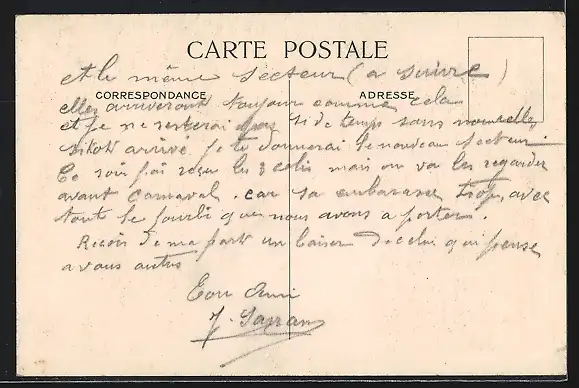 CARTE POSTALE
et le même Secteur (a suivre)
CORRESPONDANCE
ADRESSE
elles arriveront toujour comme cela
et je ne resterai pas si de temps sans nouvelles
sitôt arrivé je te donnerai le nouveau Secteur.
Ce soir j'ai reçu les 2 colis mais on va les regarder
avant Carnaval. car sa embarasse trop, avec
tout le fourbi que nous avons a porter.
Reçois de ma part un baiser de celui qui pense
a vous autres
Ton Ami
J.